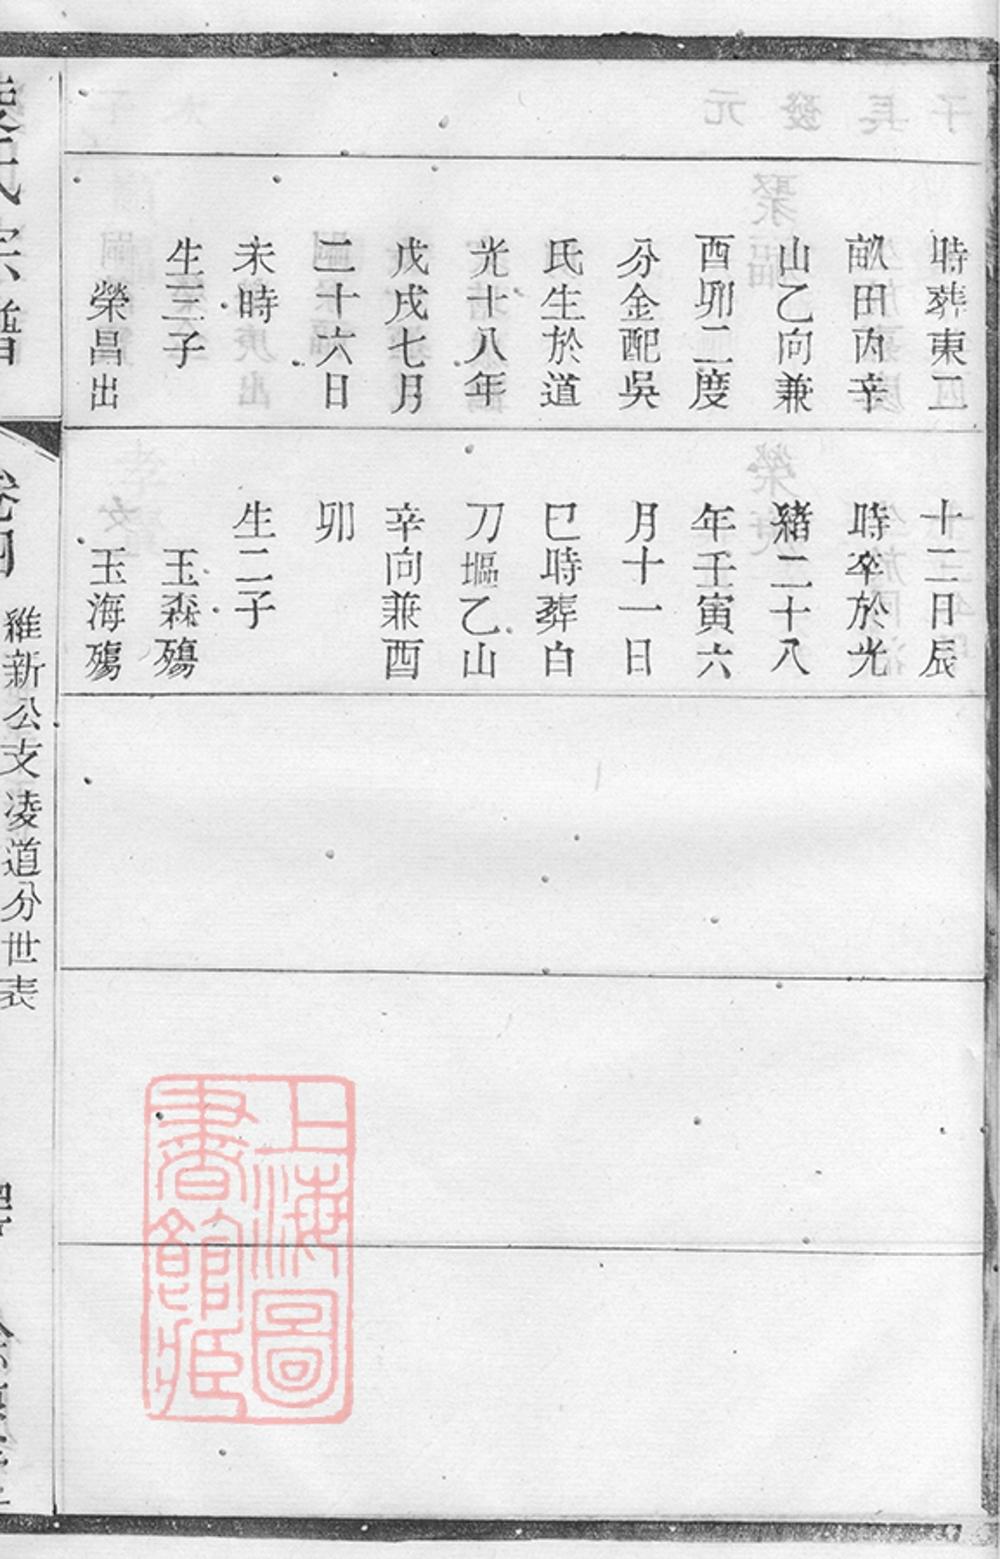 時葬東二
畝田內辛
山乙向兼
酉卯二度
分金配吳
氏生於道
光十八年
戊戌七月
二十六日
未時
生三子
榮昌出
十二日辰
時卒於光
緒二十八
年壬寅六
月十一日
巳時葬白
刀塸乙山
辛向兼酉
卯
生二子
玉森殤
玉海殤
氏宗譜
卷四
維新公支凌道分世表
上海圖
書館藏